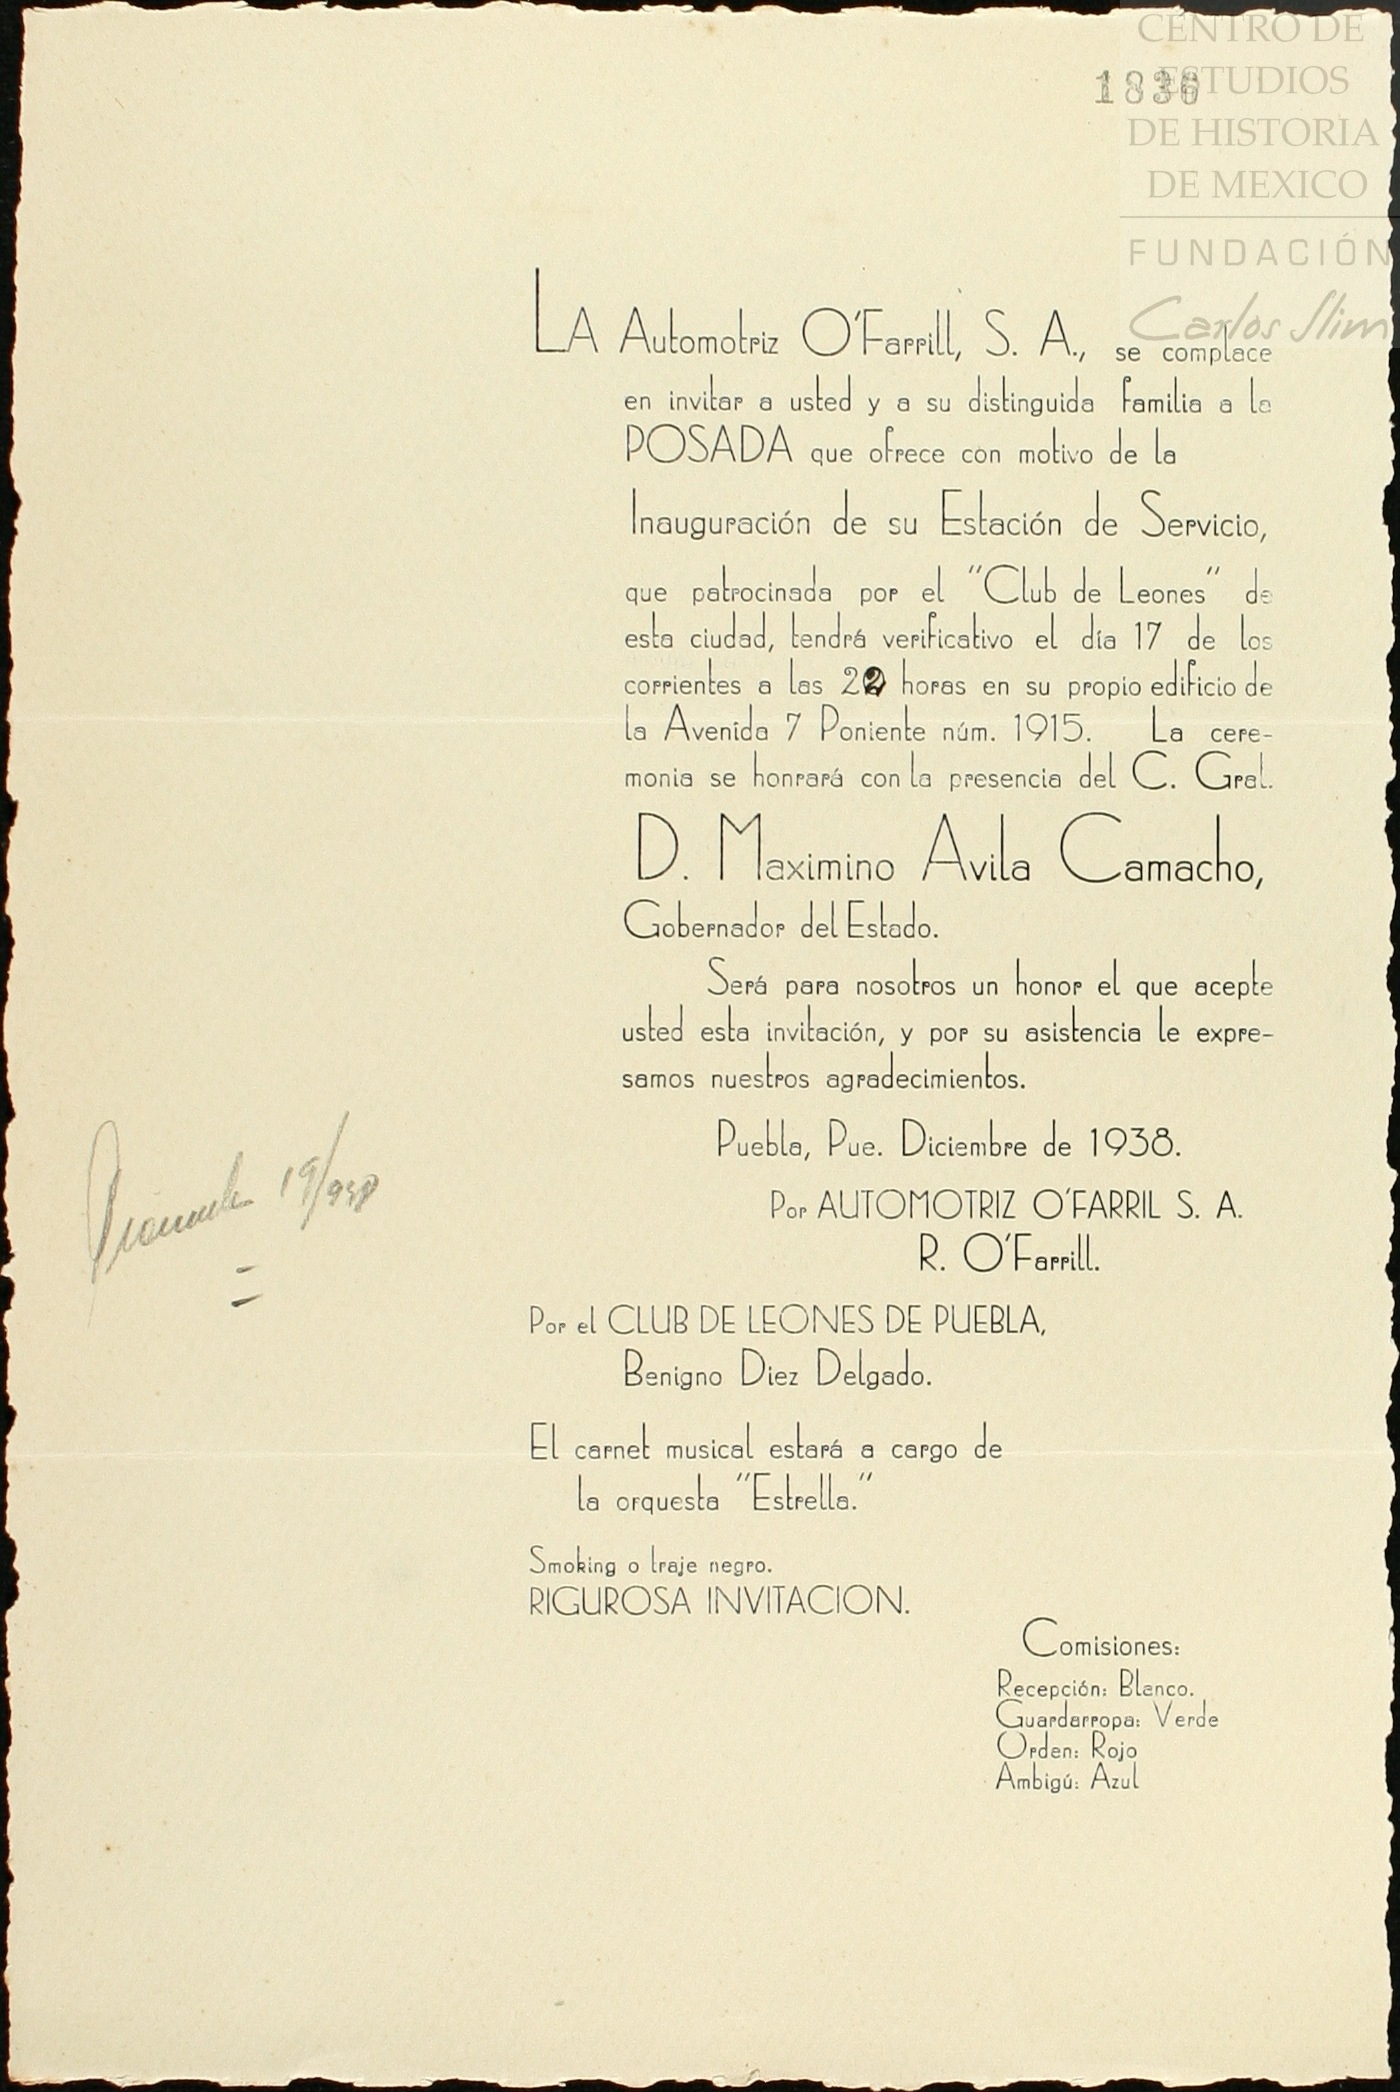 CENTRO DE
ESTUDIOS
DE HISTORIA
DE MEXICO
FUNDACIÓN
Carlos Slim
1836
LA Automotriz O'Farrill, S. A., se complace
en invitar a usted y a su distinguida familia a la
POSADA que ofrece con motivo de la
Inauguración de su Estación de Servicio,
que patrocinada por el "Club de Leones" de
esta ciudad, tendrá verificativo el día 17 de los
corrientes a las 22 horas en su propio edificio de
la Avenida 7 Poniente núm. 1915. La cere-
monia se honrará con la presencia del C. Gral.
D. Maximino Avila Camacho,
Gobernador del Estado.
Será para nosotros un honor el que acepte
usted esta invitación, y por su asistencia le expre-
samos nuestros agradecimientos.
Puebla, Pue. Diciembre de 1938.
Por AUTOMOTRIZ O'FARRIL S. A.
R. O'Farrill.
Por el CLUB DE LEONES DE PUEBLA,
Benigno Diez Delgado.
El carnet musical estará a cargo de
la orquesta "Estrella."
Smoking o traje negro.
RIGUROSA INVITACION.
Comisiones:
Recepción: Blanco.
Guardarropa: Verde
Orden: Rojo
Ambigú: Azul
19/938